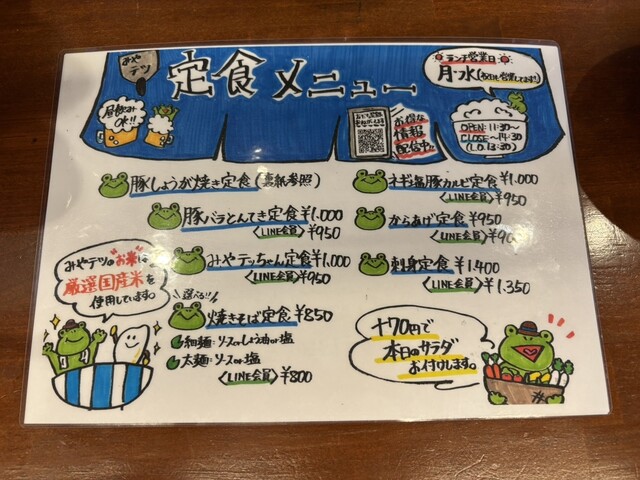 みやテツ
定食メニュー
ランチ営業日
月〜水(祝日も営業してます!)
昼飲み
OK!!
お得な
情報
配信中。
OPEN: 11:30〜
CLOSE 〜14:30
(L.O. 13:30)
豚しょうが焼き定食(裏紙参照)
豚バラとんてき定食 ¥1,000
〈LINE会員〉¥950
みやテッちゃん定食 ¥1,000
〈LINE会員〉¥950
選べる!!
焼きそば定食 ¥850
細麺:ソースorしょう油or塩
太麺:ソースor塩
〈LINE会員〉¥800
ネギ塩豚カルビ定食 ¥1,000
〈LINE会員〉¥950
からあげ定食 ¥950
〈LINE会員〉
刺身定食 ¥1,400
〈LINE会員〉¥1,350
みやテツの"お米"は
厳選国産米を
使用しています。
+70円で
本日のサラダ
お付けします。